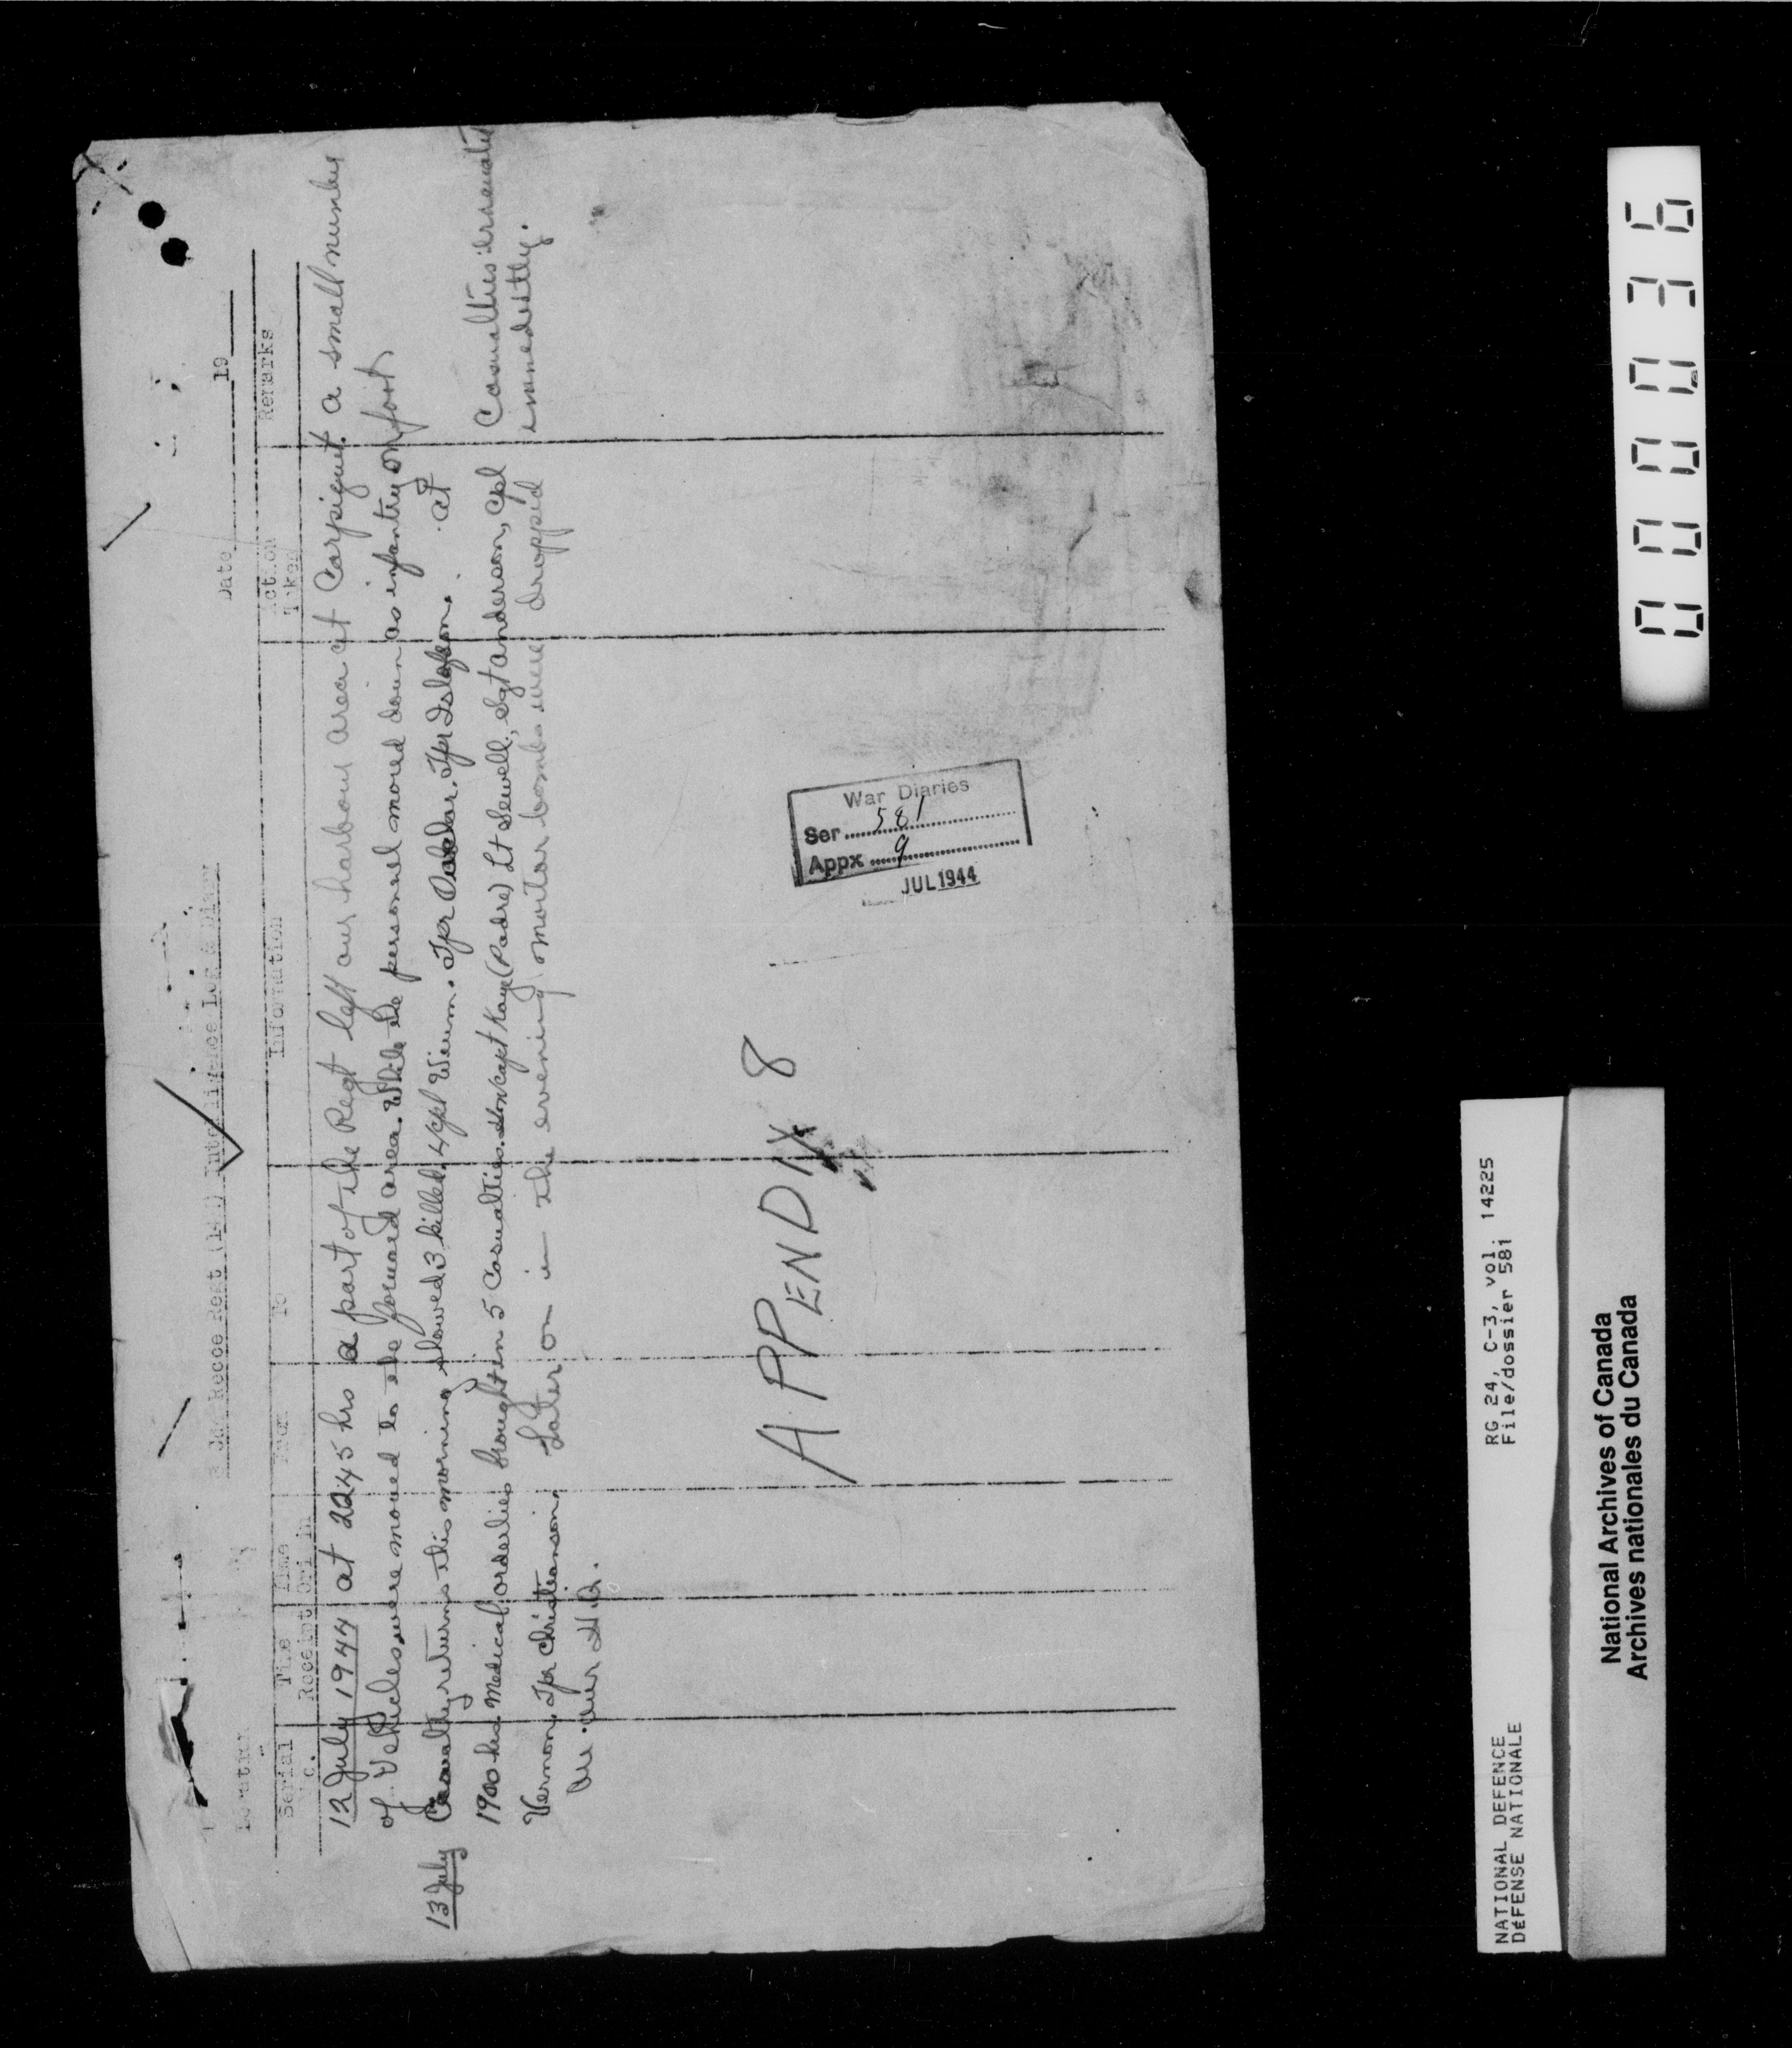 Recce Regt (14 H) Intelligence Log & Diary
Location
Date 19
Serial No. Time Receipt Time Ori in From To Information Action Taken Remarks
12 July 1944 at 2245 hrs a part of the Regt left our harbour area at Carpiquet. a small number
of Vehicles were moved to the forward area. While the personnel moved down as infantry on foot
13 July Casualty returns this morning showed 3 killed. L/Cpl Wium. Tpr Tpr at
1900 hrs Medical orderlies brought in 5 Casualties. Hon Capt Kaye (Padre) Lt Sewell, Sgt Anderson, Cpl
Casualties evacuated
immedietly.
Vernon, Tpr Christianson. Later on in the evening mortor bombs were dropped
our H.Q.
APPENDIX 8
War Diaries
Ser 581
Appx 9
JUL 1944
000036
NATIONAL DEFENCE
DÉFENSE NATIONALE
RG 24, C-3, vol. 14225
File/dossier 581
National Archives of Canada
Archives nationales du Canada